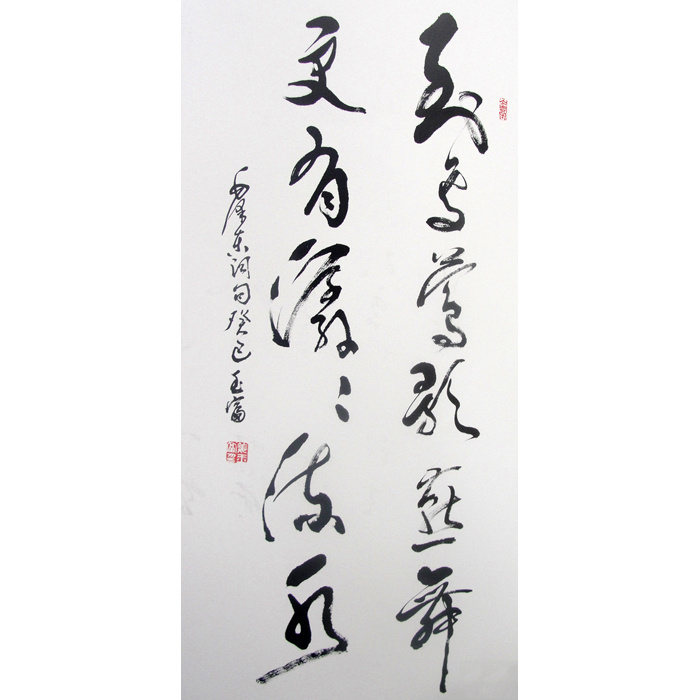 到处莺歌燕舞
更有潺〻流水
毛泽东词句癸巳玉富